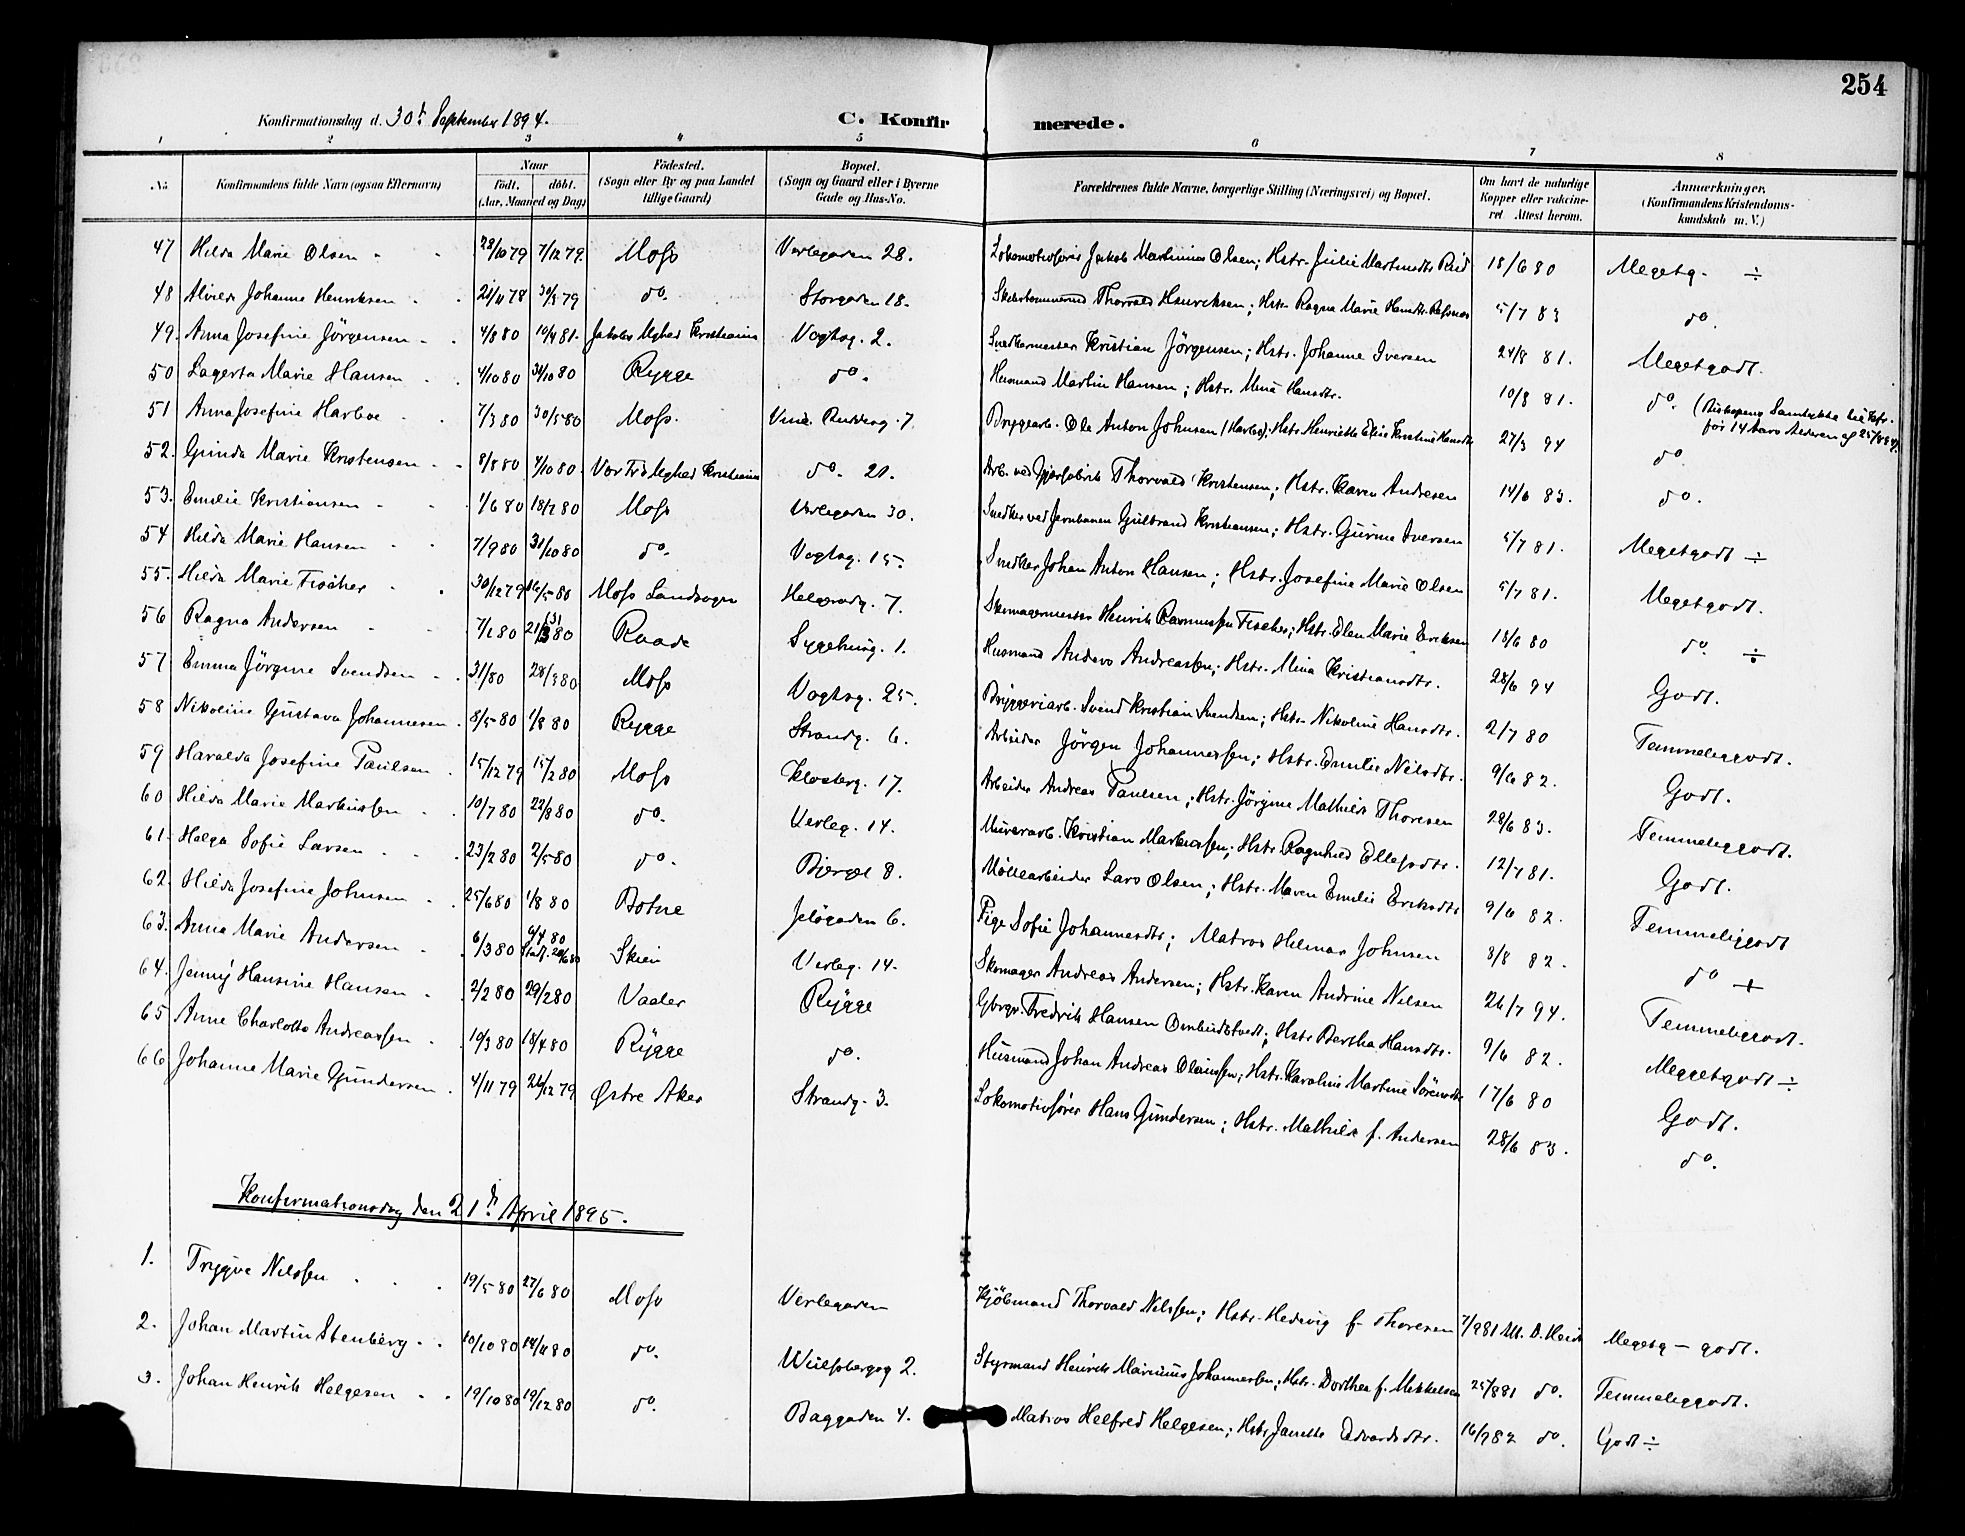 254
Konfirmationsdag d. 30t September 1894.
C. Konfirmerede.
1 2 3 4 5 6 7 8
No. Konfirmandens fulde Navn (ogsaa Efternavn) Naar födt. döbt. (Aar, Maaned og Dag) Födested. (Sogn eller By og paa Landet tillige Gaard) Bopæl. (Sogn og Gaard eller i Byerne Gade og Hus-No. Forældrenes fulde Navne, borgerlige Stilling (Næringsvei) og Bopæl. Om havt de naturlige Kopper eller vakcineret Attest herom. Anmærkninger. (Konfirmandens Kristendomskundskab m. V.)
47 Hilda Marie Olsen 28/10 79 7/12 79. Moss Verlegaden 28. Lokomotivförer Jakob Martinius Olsen; Hstr. Julie Martinsdtr 18/6 80 Megetg. ÷
48 Johanne Henriksen 21/11 78 30/3 79 do. Storgaden 18. Thorvald Henriksen; Hstr. Ragna Marie Hansdtr. 5/7 83 do.
49. Anna Josefine Jörgensen 4/8 80 10/4 81. Jakobs Kristiania Vogtsg. 2. Snedkermester Kristian Jörgensen; Hstr. Johanne Iversen 24/8 81. Megetgodt.
50 Lagerta Marie Hansen 4/10 80 31/10 80 Rygge do. Husmand Martin Hansen; Hstr. Mina Hansdtr. 10/8 81. do. (Biskopens Samtykke til Kfr. før 14 Aars Alderen af 25/8 94).
51 Anna Josefine Harboe 7/3 80 30/5 80 Moss. 7. Bryggearb. Ole Anton Johnsen (Harbo); Hstr. Henriette Elise Kristine Hansdtr 27/3 94 do.
52. Gunda Marie Kristensen 8/8 80 7/10 80. Vor Frs Kristiania do. 20. Arb. ved Thorvald Kristensen; Hstr. Karen Andresen 14/6 83. do.
53. Emilie Kristiansen 1/6 80 18/7 80 Moss Verlegaden 30. Snedker ved Jernbanen Gulbrand Kristiansen; Hstr. Gurine Iversen 5/7 81. Megetgodt ÷
54 Hilda Marie Hansen 7/9 80 31/10 80 do. Vogtsg. 15. Snedker Johan Anton Hansen; Hstr. Josefine Marie Olsen 5/7 81. Megetgodt.
55. Hilda Marie Fischer 30/12 79 16/5 80 Moss Landsogn 7. Skomagermester Henrik Rasmussen Fischer; Hstr. Elen Marie Eriksen 18/6 80 do. ÷
56 Ragna Andersen 7/2 80 21/3 80 Raade Sygehusg. 1. Husmand Anders Andreassen; Hstr. Mina Kristiansdtr. 28/6 94 Godt.
57 Emma Jörgine Svendsen 31/ 80 28/3 80 Moss Vogtsg. 25. Bryggeriarb. Svend Kristian Svendsen; Hstr. Nikoline Hansdtr. 2/7 80 Temmeliggodt.
58 Nikoline Gustava Johannesen. 8/5 80 1/8 80 Rygge Strandg. 6. Arbeider Jörgen Johannessen; Hstr. Emilie Nilsdtr. 9/6 82. Godt.
59 Haralda Josefine Paulsen 15/12 79 15/2 80 Moss Klosterg. 17. Arbeider Andreas Paulsen; Hstr. Jörgine Mathilde Thoresen 28/6 83. Temmeliggodt.
60 Hilda Marie Markussen 10/7 80 22/8 80 do. Verleg. 14. Murerarb. Kristian Markussen; Hstr. Ragnhild Ellefsdtr. 12/7 81. Godt.
61. Helga Sofie Larsen 23/2 80 2/5 80 do. Bjerget 8. Möllearbeider Lars Olsen; Hstr. Maren Emilie Eriksdtr 9/6 82. Temmeliggodt
62. Hilda Josefine Johnsen 25/6 80 1/8 80 Botne Jelögaden 6. Pige Sofie Johannesdtr; Matros Hilmar Johnsen 8/8 82. do +
63. Anna Marie Andersen 6/3 80 4/4 80 Stadf. 20/6 80 Skien Verleg. 14. Skomager Andreas Andersen; Hstr. Karen Andrine Nilsen 26/7 94. Temmeliggodt.
64. Jenny Hansine Hansen 2/2 80 29/2 80 Vaaler Rygge Gbrgr. Fredrik Hansen Ombudstvedt; Hstr. Bertha Hansdtr. 9/6 82. Meggetgodt ÷
65 Anne Charlotte Andreassen 10/3 80 18/4 80 Rygge do. Husmand Johan Andreas Olaussen; Hstr. Karoline Martine Sörensdtr 17/6 80 Godt.
66. Johanne Marie Gundersen 4/11 79 26/12 79 Østre Aker Strandg. 3. Lokomotivförer Hans Gundersen; Hstr. Mathilde f. Andersen 28/6 83. do.
Konfirmationsdag den 21de April 1895.
1. Trygve Nilssen 19/5 80 27/6 80 Moss Verlegaden Kjöbmand Thorvald Nilssen; Hstr. Hedevig f. Thoresen 7/9 81 Megetg - godt.
2. Johan Martin Stenberg 10/10 80 14/11 80 do. Wulfsbergsg 2. Styrmand Henrik Marinius Johannessen; Hstr. Dorthea f. Mikkelsen 25/8 81 do. Temmeliggodt.
3. Johan Henrik Helgesen 19/10 80 19/12 80 do. Baggaden 4. Matros Helfred Helgesen; Hstr. Janette Edvardsdtr. 16/9 82 do. Godt ÷